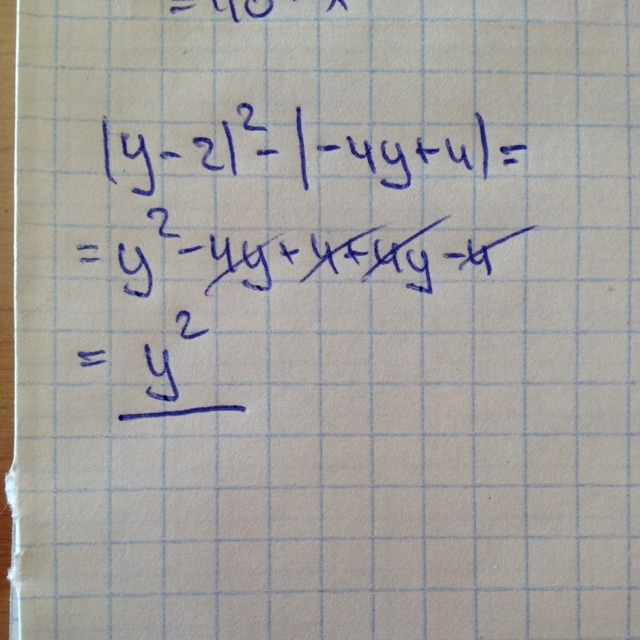 =40-x
|y-2|²-|-4y+4|=
=y²-4y+4+4y-4
=y²